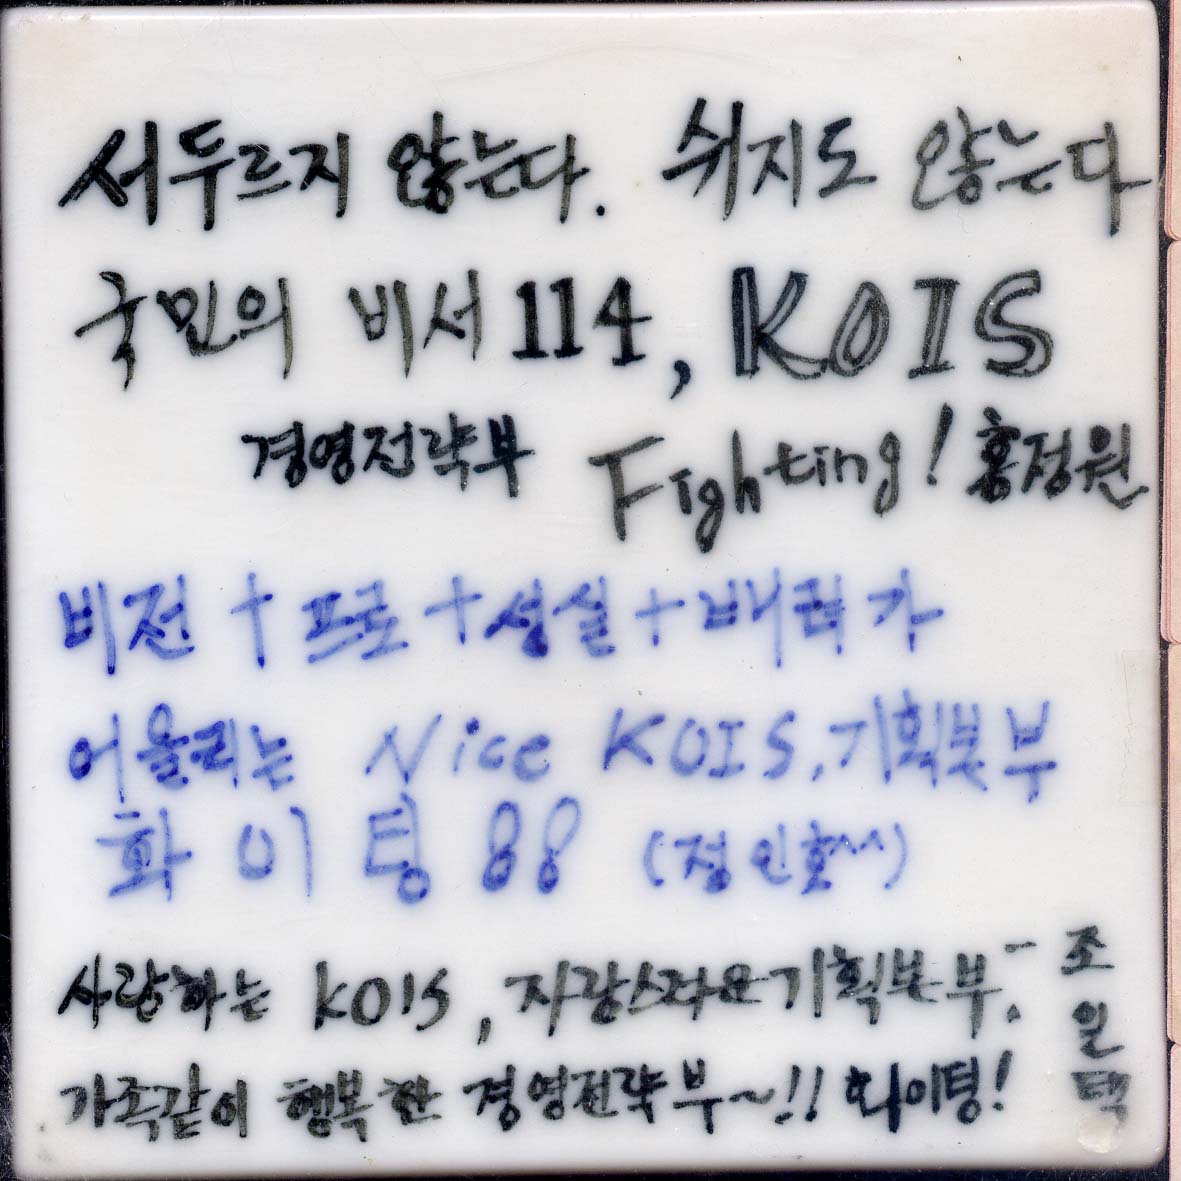 서두르지 않는다. 쉬지도 않는다
국민의 비서 114, KOIS
경영전략부 Fighting! 홍정원
비전 + 프로 + 성실 + 배려가
어울리는 Nice KOIS, 기획본부
화이팅 88 (정인호^^)
사랑하는 KOIS, 자랑스러운 기획본부!
가족같이 행복한 경영전략부~!! 화이팅!
조일택